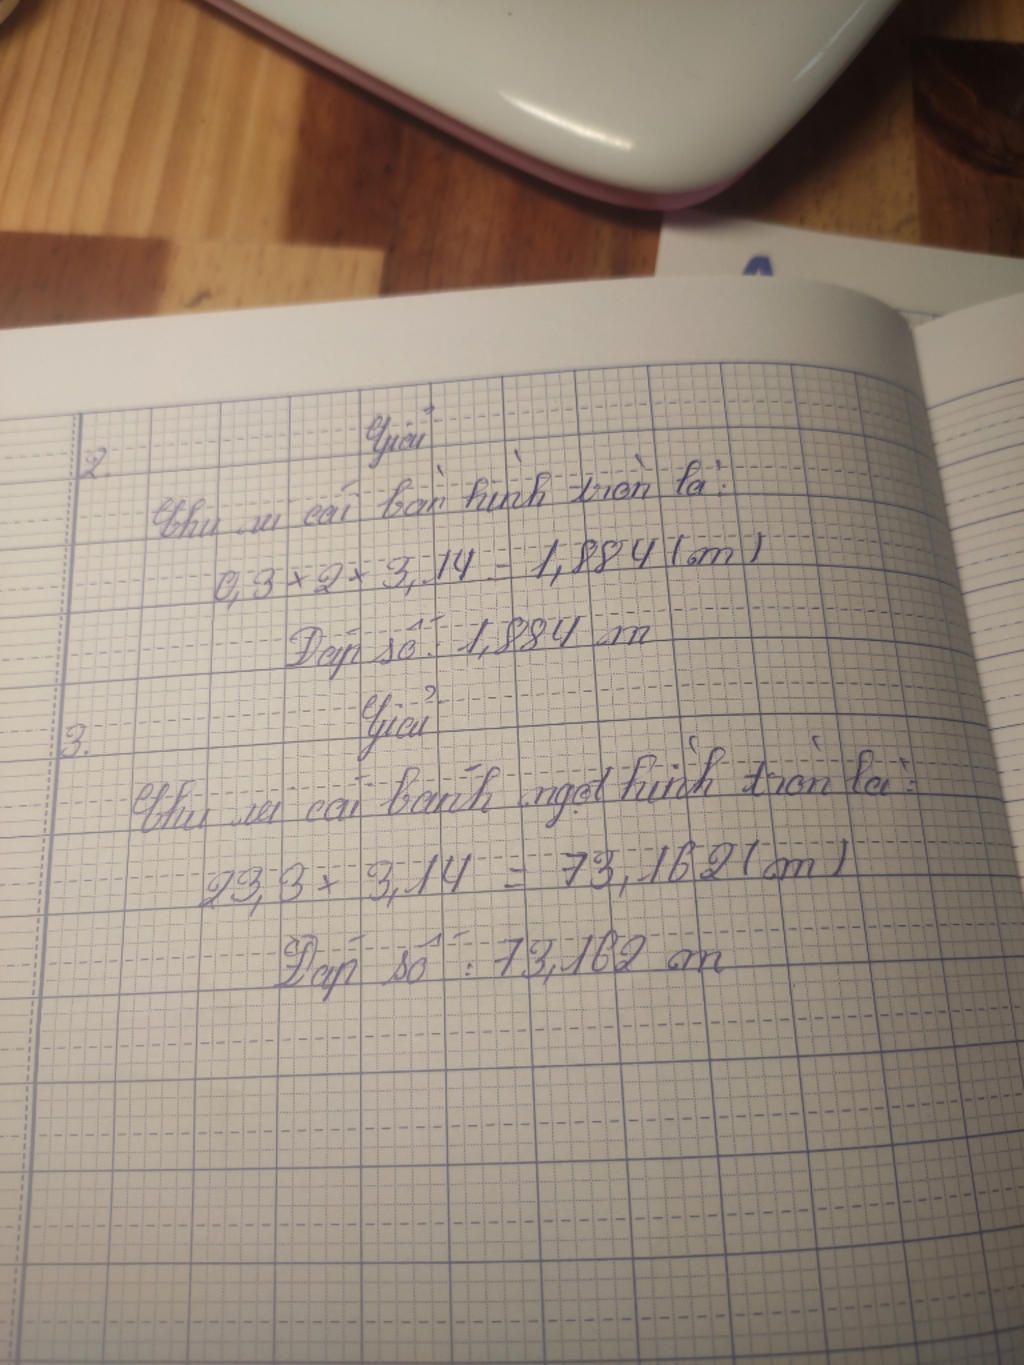 A
2. Giải
Chu vi cái bàn hình tròn là:
0,3 × 2 × 3,14 = 1,884 (m)
Đáp số: 1,884 m
3. Giải
Chu vi cái bánh ngọt hình tròn là:
23,3 × 3,14 = 73,162 (m)
Đáp số: 73,162 m